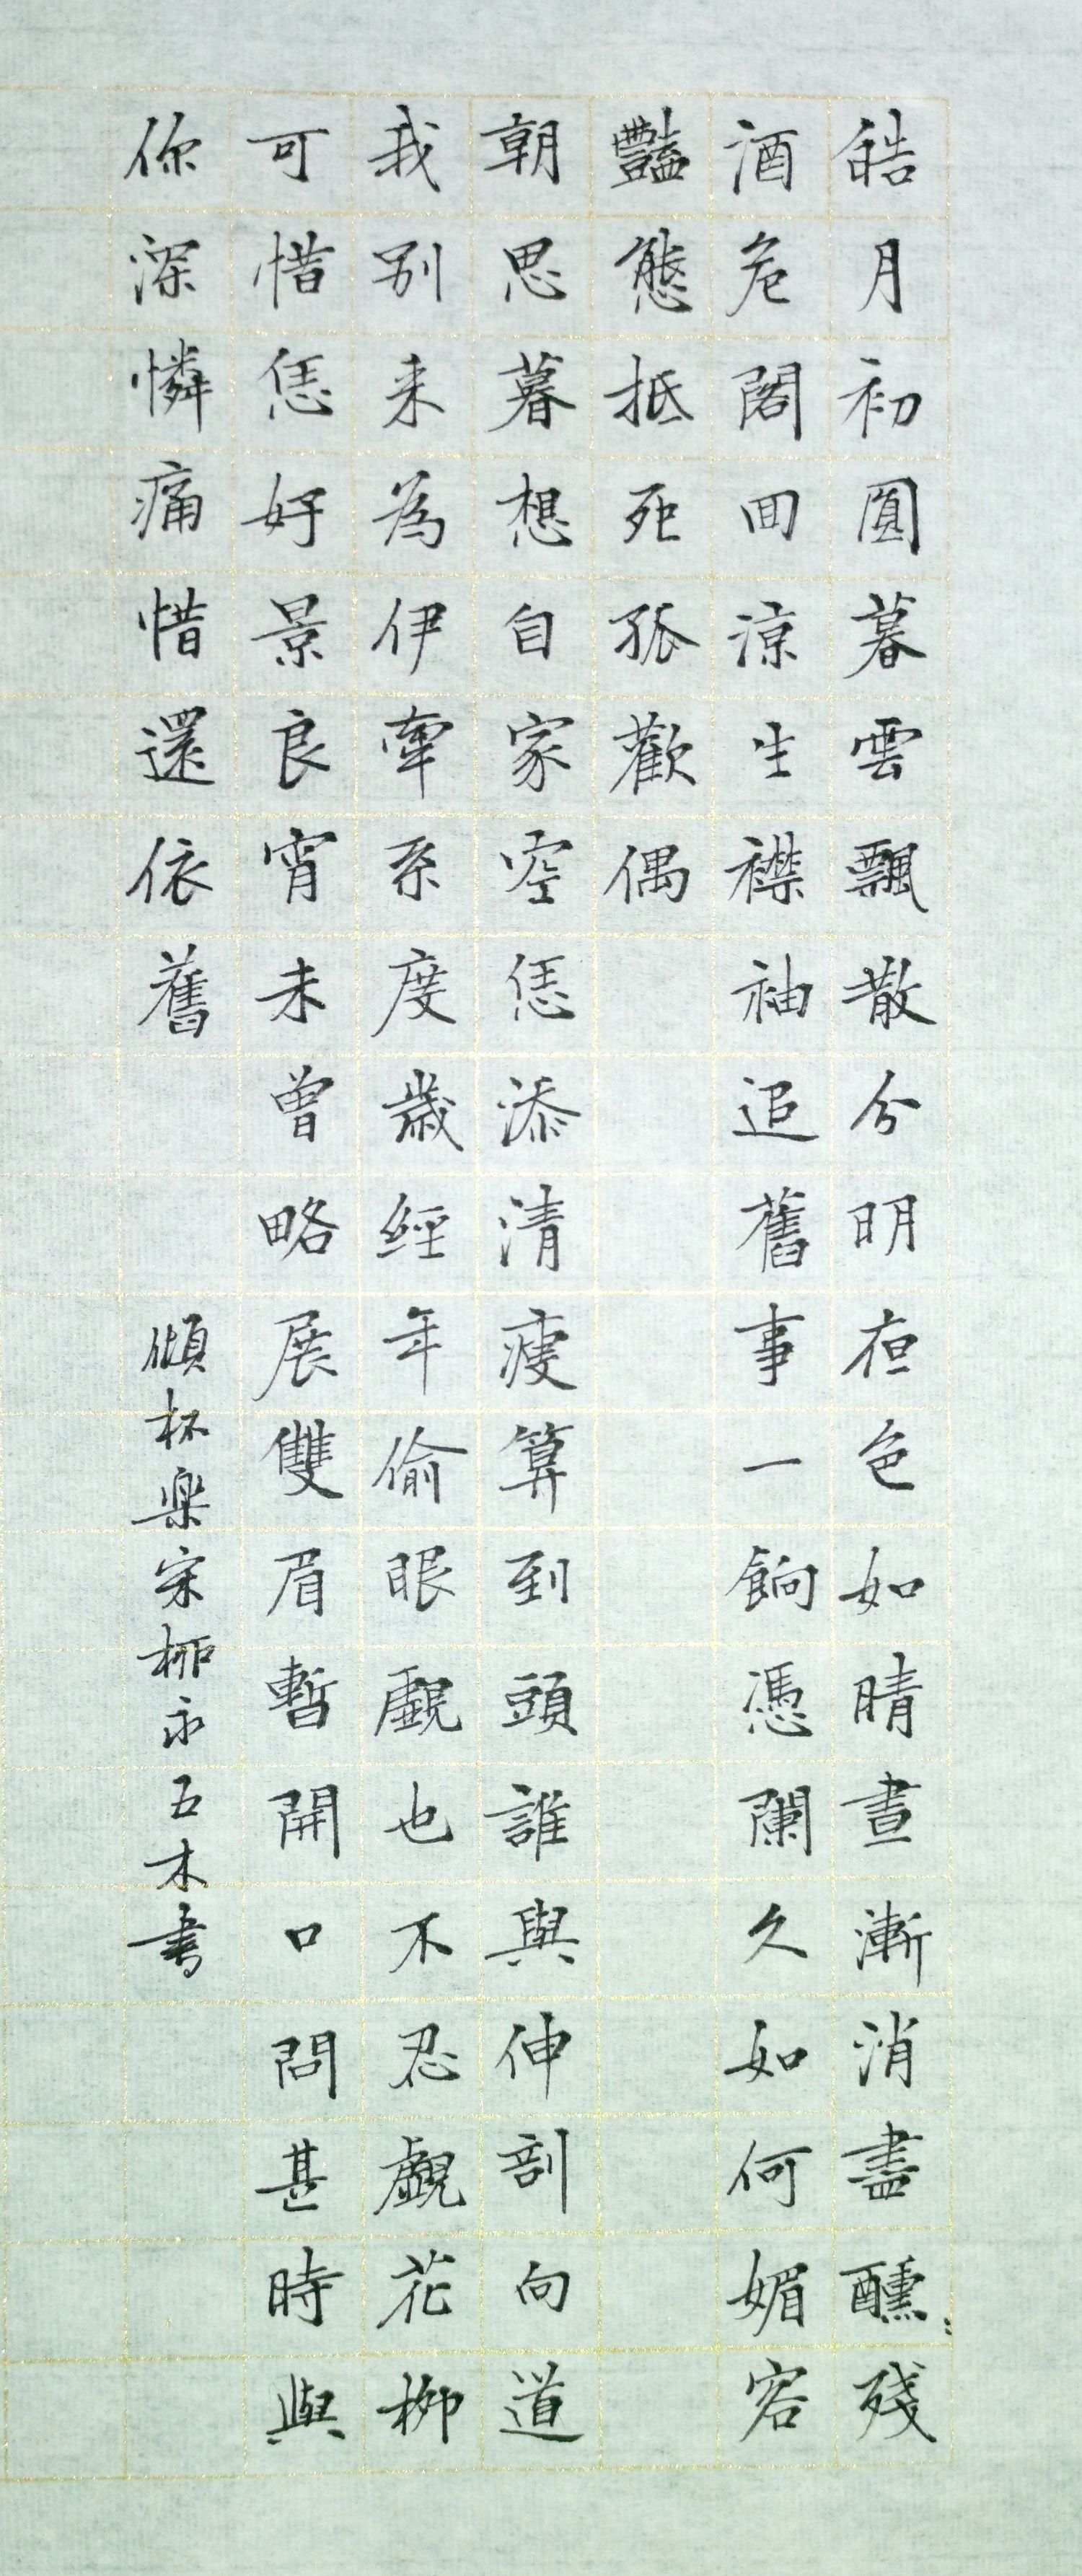 皓月初圓暮雲飄散分明夜色如晴晝漸消盡醺﹕殘
酒危閣回涼生襟袖追舊事一餉憑闌久如何媚容
豔態抵死孤歡偶
朝思暮想自家空恁添清瘦算到頭誰與伸剖向道
我別來為伊牽系度歲經年偷眼覷也不忍覷花柳
可惜恁好景良宵未曾略展雙眉暫開口問甚時與
你深憐痛惜還依舊
傾杯樂宋柳永五木書